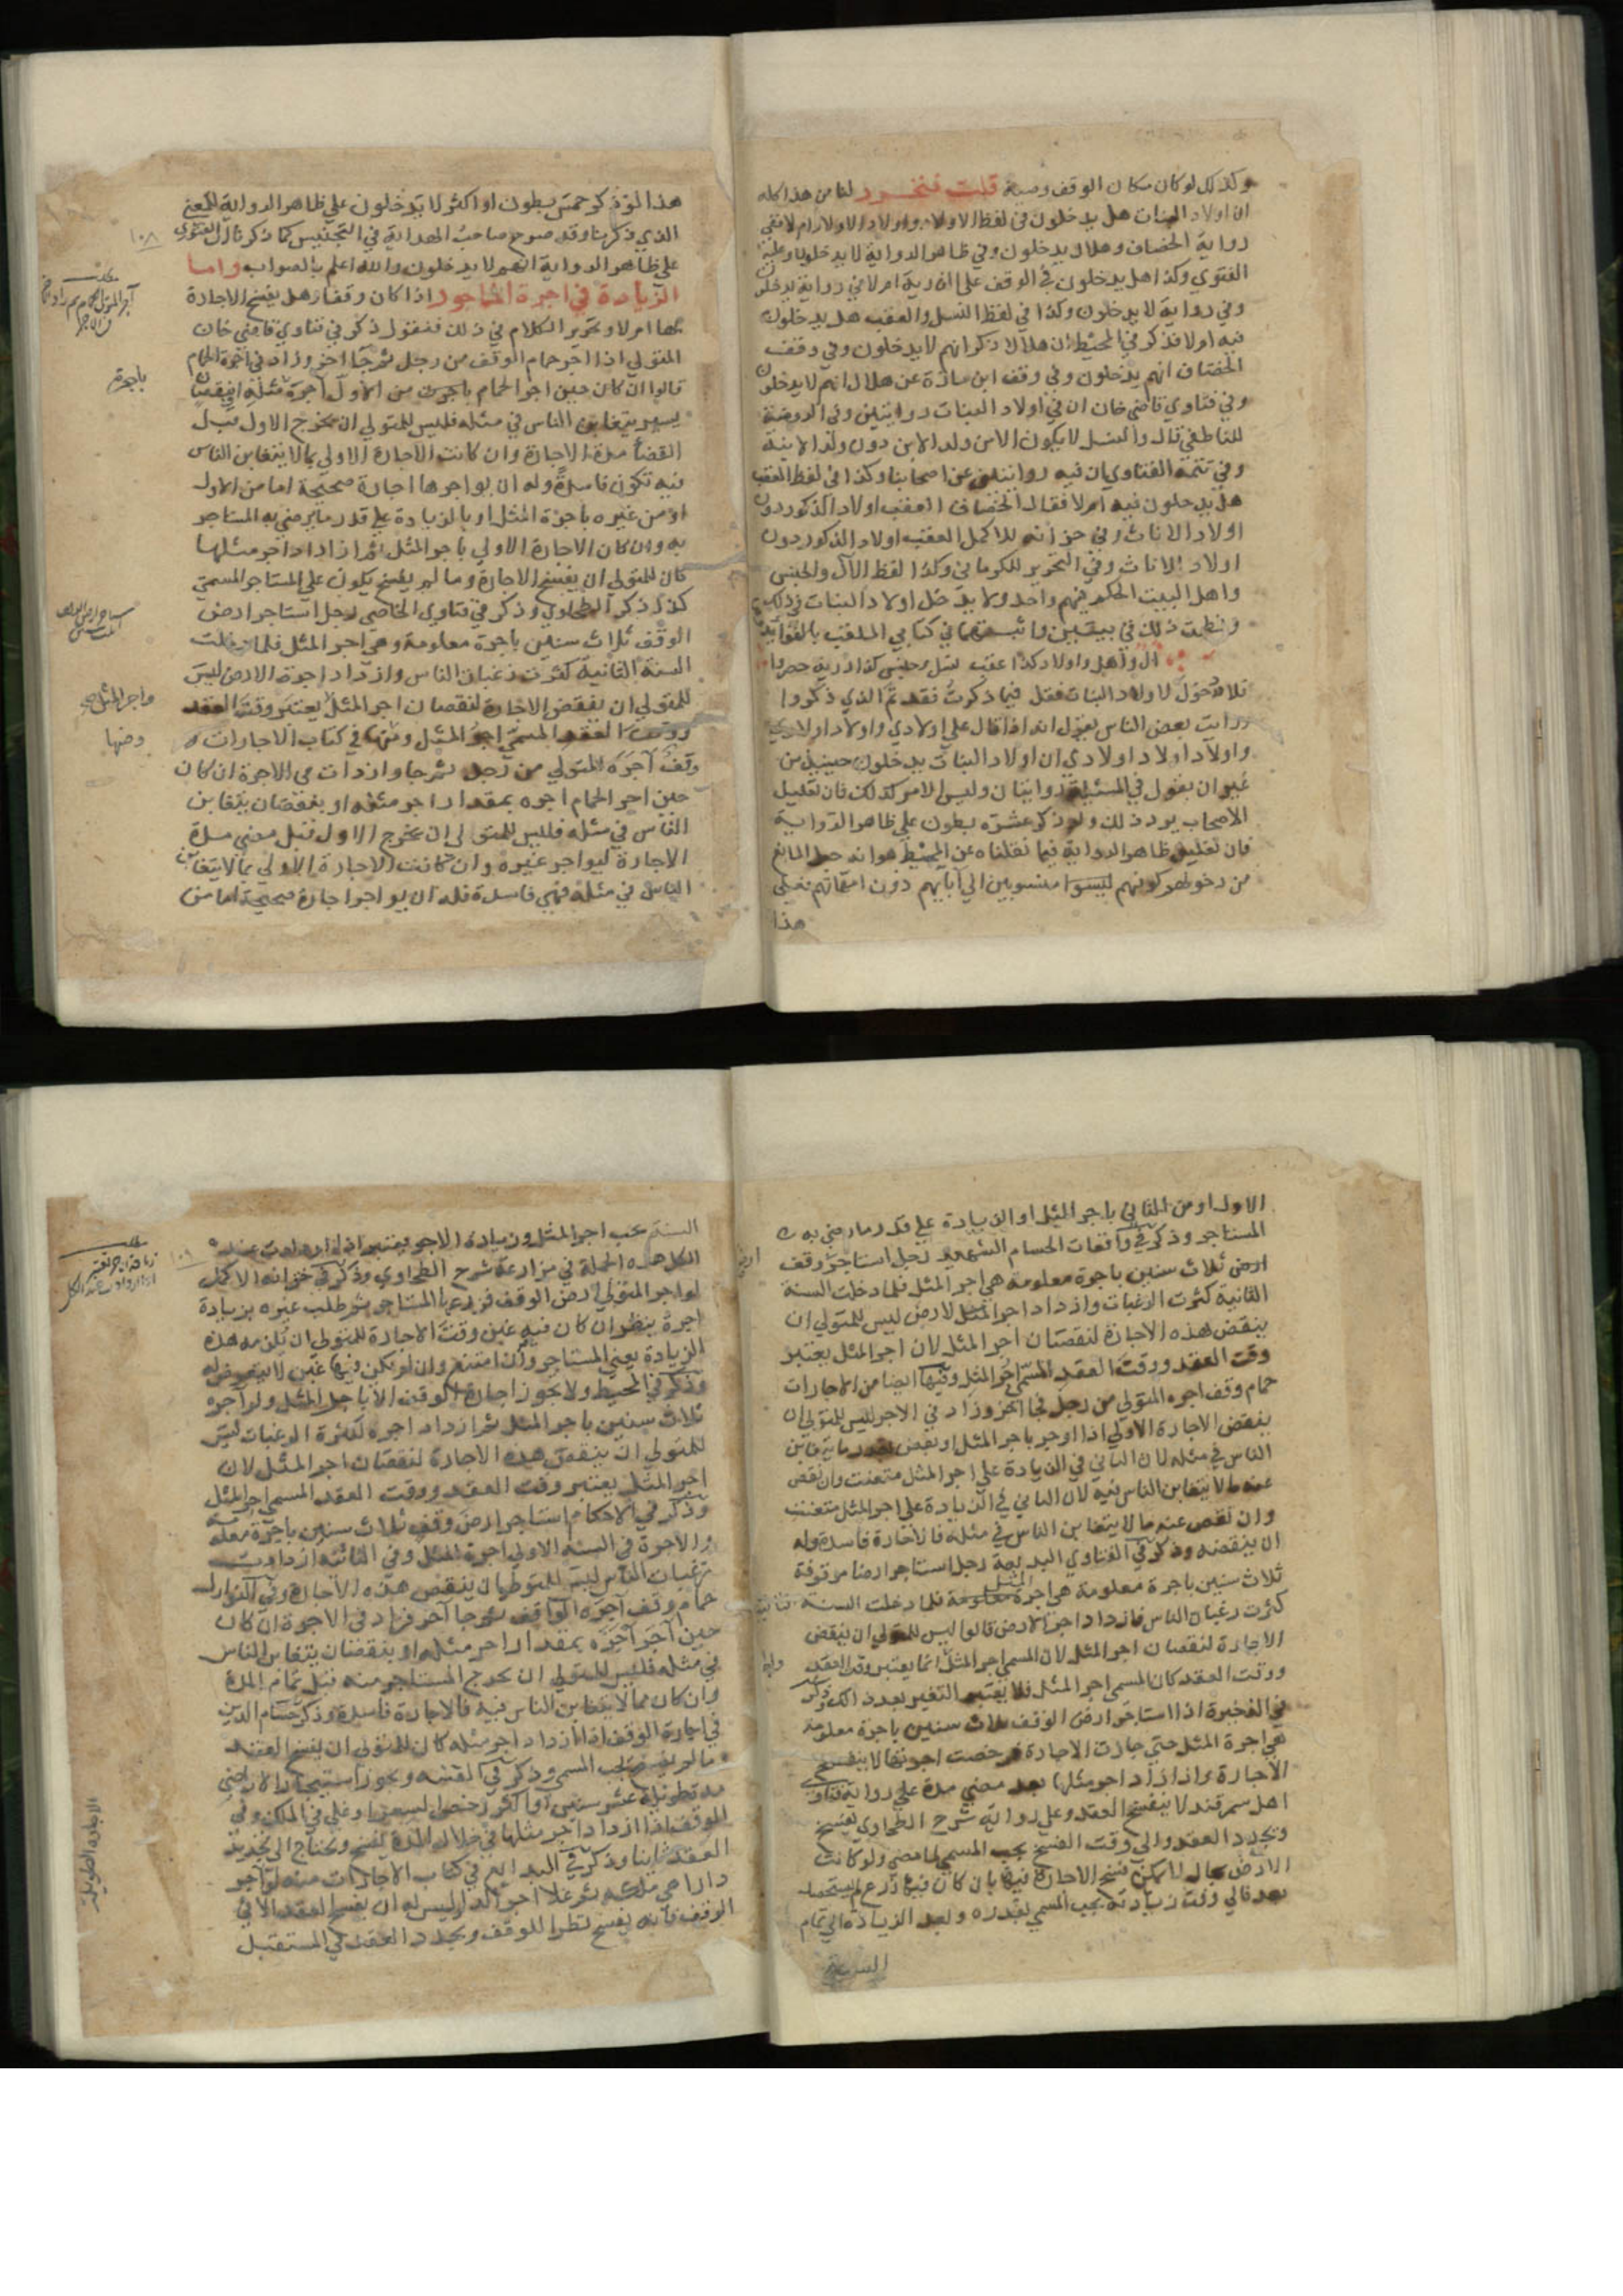 وكذلك لو كان مكان الوقف وصية قلت فتحرر لنا من هذا كله
ان اولاد البنات هل يدخلون في لفظ الاولاد واولاد الاولاد ام لا ففي
رواية الخصاف وهلال يدخلون وفي ظاهر الرواية لا يدخلون وعليه
الفتوي وكذا هل يدخلون في الوقف على الذرية ام لا في رواية يدخلون
وفي رواية لا يدخلون وكذا في لفظ النسل والعقب هل يدخلون
فيه ام لا فذكر في المحيط ان هلالا ذكر انهم لا يدخلون وفي وقف
الخصاف انهم يدخلون وفي وقف ابن مازة عن هلال انهم لا يدخلون
وفي فتاوي قاضي خان ان في اولاد البنات روايتين وفي الروضة
للناطفي قال والنسل لا يكون الا من ولد الابن دون ولد الابنة
وفي تتمة الفتاوي ان فيه روايتين عن اصحابنا وكذا في لفظ العقب
هل يدخلون فيه ام لا فقال الخصاف العقب اولاد الذكور دون
اولاد الاناث وفي خزانة الاكمل العقب اولاد الذكور دون
اولاد الاناث وفي التحرير للكرماني وكذا لفظ الآل والجنس
واهل البيت الحكم فيهم واحد ولا يدخل اولاد البنات في ذلك
ونظمت ذلك في بيتين واثبتهما في كتابي الملقب بالفوائد
آل واهل واولاد كذا عقب نسل وجنس كذا ذرية حصروا
فلا دخول لاولاد البنات فقل فيما ذكرت فقد تم الذي ذكروا
ورايت بعض الناس يقول انه اذا قال علي اولادي واولاد اولادي
واولاد اولاد اولادي ان اولاد البنات يدخلون حينئذ من
غير ان يقول في المسئلة روايتان وليس الامر كذلك فان تعليل
الاصحاب يرد ذلك ولو ذكر عشرة بطون علي ظاهر الرواية
فان تعليل ظاهر الرواية فيما نقلناه عن المحيط هو انه جعل المانع
من دخولهم كونهم ليسوا منسوبين الي آبايهم دون امهاتهم فعلي
هذا
هذا لو ذكر خمس بطون او اكثر لا يدخلون علي ظاهر الرواية للمعني
الذي ذكرنا وقد صرح صاحب الهداية في التجنيس كما ذكرنا ان الفتوي
علي ظاهر الرواية انهم لا يدخلون والله اعلم بالصواب واما
الزيادة في اجرة الماجور اذا كان وقفا هل يفسخ الاجارة
بها ام لا وتحرير الكلام في ذلك فنقول ذكر في فتاوي قاضي خان
المتولي اذا آجر حمام الوقف من رجل ثم جا آخر وزاد في اجرة الحمام
قالوا ان كان حين اجر الحمام باجرت من الاول اجرة مثله او بنقصان
يسير يتغابن الناس في مثله فليس للمتولي ان يخرج الاول قبل
انقضأ مدة الاجارة وان كانت الاجارة الاولي بما لا يتغابن الناس
فيه تكون فاسدة وله ان يواجرها اجارة صحيحة اما من الاول
او من غيره باجرة المثل او بالزيادة علي قدر ما يرضي به المستاجر
به وان كان الاجارة الاولي باجر المثل ثم ازداد اجر مثلها
كان للمتولي ان يفسخ الاجارة وما لم يفسخ يكون علي المستاجر المسمي
كذا ذكر الطحاوي وذكر في فتاوي الخاصي رجل استاجر ارض
الوقف ثلاث سنين باجرة معلومة وهي اجر المثل فلما دخلت
السنة الثانية كثرت رغبات الناس وازداد اجرة الارض ليس
للمتولي ان ينقض الاجارة لنقصان اجر المثل يعتبر وقت العقد
ووقت العقد المسمي اجر المثل ومنها في كتاب الاجارات
وقف آجره المتولي من رجل ثم جا وازدات من الاجرة ان كان
حين اجر الحمام اجره بمقدار اجر مثله او بنقصان يتغابن
الناس في مثله فليس للمتولي ان يخرج الاول قبل مضي مدة
الاجارة ليواجر غيره وان كانت الاجارة الاولي بما لا يتغابن
الناس في مثله فهي فاسدة فله ان يواجر اجارة صحيحة اما من
١٠٨
باجرة
واجر المثل
ومنها
الاول او من الثاني باجر المثل او الزيادة علي قدر ما رضي به
المستاجر وذكر في واقعات الحسام الشهيد رجل استاجر وقف
ارض ثلاث سنين باجرة معلومة هي اجر المثل فلما دخلت السنة
الثانية كثرت الرغبات وازداد اجر المثل لارض ليس للمتولي ان
ينقض هذه الاجارة لنقصان اجر المثل لان اجر المثل يعتبر
وقت العقد ووقت العقد المسمي اجر المثل وفيها ايضا من الاجارات
حمام وقف اجره المتولي من رجل فجا آخر وزاد في الاجر ليس للمتولي ان
ينقض الاجارة الاولي اذا اوجر باجر المثل او نقص بقدر ما يتغابن
الناس في مثله لان الثاني في الزيادة علي اجر المثل متعنت وان نقض
عنه ما لا يتغابن الناس فيه لان الثاني في الزيادة علي اجر المثل متعنت
وان نقص عنه ما لا يتغابن الناس في مثله فالاجارة فاسدة وله
ان ينقضه وذكر في الفتاوي البديعة رجل استاجر ارضا موقوفة
ثلاث سنين باجرة معلومة هي اجرة المثل فلما دخلت السنة
كثرت رغبات الناس فازداد اجر الارض قالوا ليس للمتولي ان ينقض
الاجارة لنقصان اجر المثل لان المسمي اجر المثل انما يعتبر وقت العقد
ووقت العقد كان المسمي اجر المثل فلا يعتبر التغير بعد ذلك وذكر
في الذخيرة اذا استاجر ارض الوقف ثلاث سنين باجرة معلومة
هي اجرة المثل حتي جازت الاجارة فرخصت اجرتها لا ينفسخ
الاجارة واذا ازداد اجر مثلها بعد مضي مدة علي رواية فتاوي
اهل سمرقند لا ينفسخ العقد وعلي رواية شرح الطحاوي يفسخ
ويجدد العقد والي وقت الفسخ يجب المسمي لما مضي ولو كانت
الارض بحال لا يمكن فسخ الاجارة فيها بان كان فيها زرع لم يستحصد
بعد فالي وقت زيادته يجب المسمي بقدره وبعد الزيادة الي تمام
السنة
السنة يجب اجر المثل وزيادة الاجر يعتبر اذا ازدادت عند
الكل هذه الجملة في مزارعة شرح الطحاوي وذكر في خزانة الاكمل
لو اجر المتولي ارض الوقف فزرعها المستاجر ثم طلب غيره بزيادة
اجرة ينظر ان كان فيه غبن وقت الاجارة للمتولي ان يلزمه هذه
الزيادة يعني المستاجر وان امتنع وان لم يكن فيها غبن لا يتعرض له
وذكر في المحيط ولا يجوز اجارة الوقف الا باجر المثل ولو آجره
ثلاث سنين باجر المثل ثم ازداد اجره لكثرة الرغبات ليس
للمتولي ان ينقض هذه الاجارة لنقصان اجر المثل لان
اجر المثل يعتبر وقت العقد ووقت العقد المسمي اجر المثل
وذكر في الاحكام استاجر ارض وقف ثلاث سنين باجرة معلومة
والاجرة في السنة الاولي اجرة المثل وفي الثانية ازدادت
رغبات الناس ليس للمتولي ان ينقض هذه الاجارة وفي النوازل
حمام وقف آجره الواقف ثم جا آخر فزاد في الاجرة ان كان
حين آجر آجره بمقدار اجر مثله او بنقصان يتغابن الناس
في مثله فليس للمتولي ان يخرج المستاجر منه قبل تمام المدة
وان كان مما لا يتغابن الناس فيه فالاجارة فاسدة وذكر حسام الدين
في اجارة الوقف اذا ازداد اجر مثله كان للمتولي ان يفسخ العقد
ما لم يفسخ يجب المسمي وذكر في القنية ويجوز استيجار الاراضي
مدة طويلة عشر سنين او اكثر رخص السعر او غلي في الملك وفي
الوقف اذا ازداد اجر مثلها في خلال المدة يفسخ ويحتاج الي تجديد
العقد ثانيا وذكر في البدايع في كتاب الاجارات منه لو آجر
دارا هي ملكه ثم غلا اجر الدار ليس له ان يفسخ العقد الا في
الوقف فانه يفسخ نظرا للوقف ويجدد العقد في المستقبل
١٠٩
الاجارة الطويلة